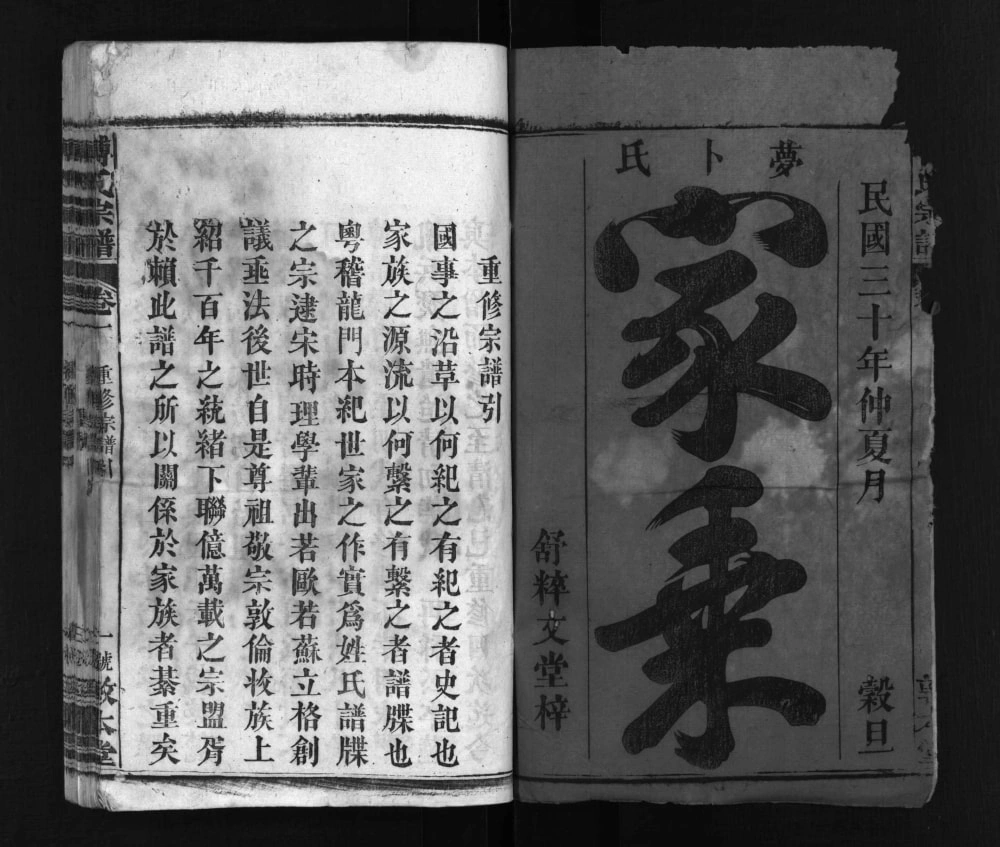 民國三十年仲夏月 穀旦
夢卜氏
家乘
舒粹文堂梓
重修宗譜引
國事之沿草以何紀之有紀之者史記也
家族之源流以何繫之有繫之者譜牒也
粵稽龍門本紀世家之作實爲姓氏譜牒
之宗逮宋時理學輩出若歐若蘇立格創
議垂法後世自是尊祖敬宗敦倫收族上
紹千百年之統緒下聯億萬載之宗盟胥
於賴此譜之所以關係於家族者綦重矣
氏宗譜 卷一 重修宗譜引 一號 敦本堂